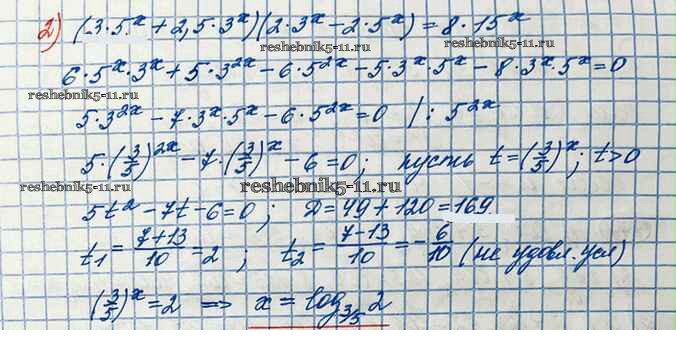 2) (3·5^x + 2,5·3^x)(2·3^x − 2·5^x) = 8·15^x
reshebnik5-11.ru
6·5^x·3^x + 5·3^{2x} − 6·5^{2x} − 5·3^x·5^x − 8·3^x·5^x = 0
reshebnik5-11.ru
5·3^{2x} − 7·3^x·5^x − 6·5^{2x} = 0 | : 5^{2x}
reshebnik5-11.ru
5·(3/5)^{2x} − 7·(3/5)^x − 6 = 0; пусть t = (3/5)^x; t > 0
reshebnik5-11.ru reshebnik5-11.ru
5t² − 7t − 6 = 0; D = 49 + 120 = 169
t₁ = (7+13)/10 = 2; t₂ = (7−13)/10 = −6/10 (не удовл. усл)
reshebnik5-11.ru
(3/5)^x = 2 ⇒ x = log_{3/5} 2